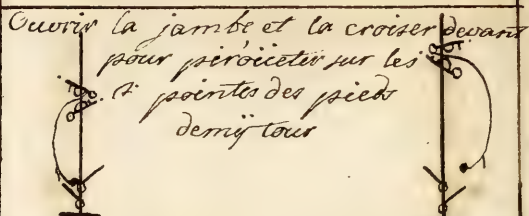 Ouvrir la jambe et la croiser devant
pour piroüeter sur les
pointes des pieds
demÿ tour